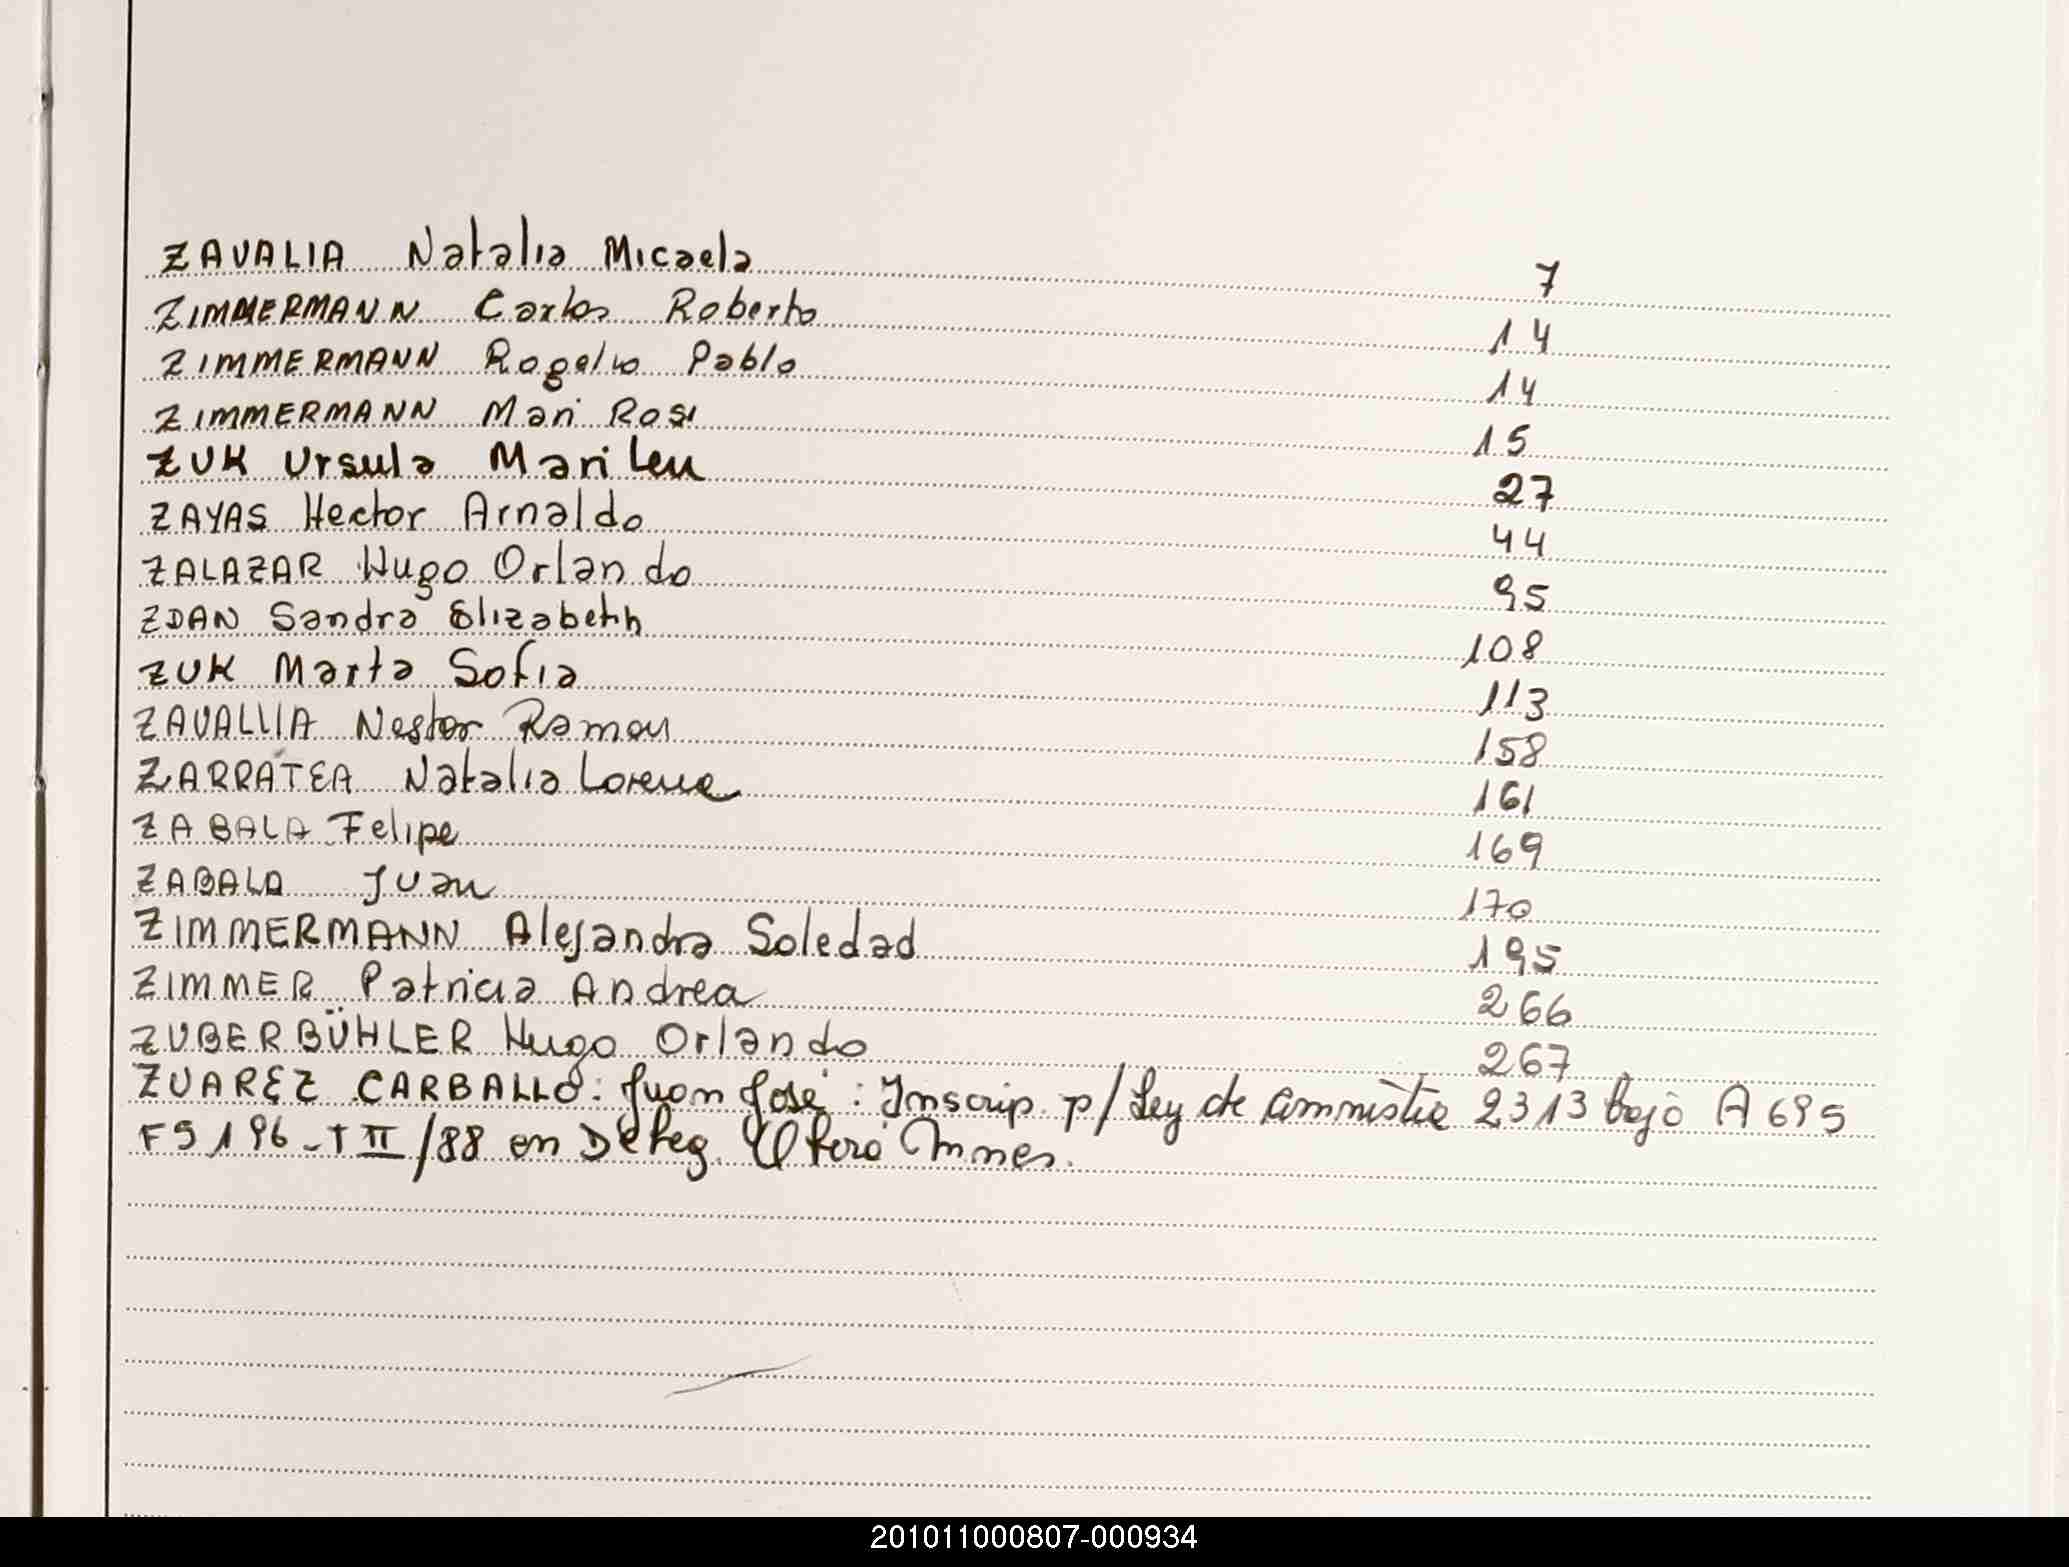 ZAVALIA Natalia Micaela 7
ZIMMERMANN Carlos Roberto 14
ZIMMERMANN Rogelio Pablo 14
ZIMMERMANN Mari Rosi 15
ZUK Ursula Marileu 27
ZAYAS Hector Arnaldo 44
ZALAZAR Hugo Orlando 95
ZDAN Sandra Elizabeth 108
ZUK Marta Sofia 113
ZAVALLIA Nestor Ramon 158
ZARRATEA Natalia Lorena 161
ZABALA Felipe 169
ZABALA Juan 170
ZIMMERMANN Alejandra Soledad 195
ZIMMER Patricia Andrea 266
ZUBERBÜHLER Hugo Orlando 267
ZUAREZ CARBALLO: Juan José: Inscrip. p/Ley de amnistia 2313 bajo A 695
Fs 196 - T II/88 en Deleg.
201011000807-000934